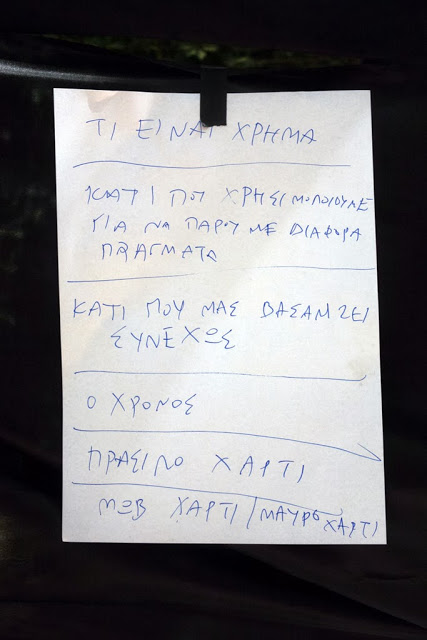 ΤΙ ΕΙΝΑΙ ΧΡΗΜΑ
ΚΑΤΙ ΠΟΥ ΧΡΗΣΙΜΟΠΟΙΟΥΜΕ
ΓΙΑ ΝΑ ΠΑΡΟΥΜΕ ΔΙΑΦΟΡΑ
ΠΡΑΓΜΑΤΑ
ΚΑΤΙ ΠΟΥ ΜΑΣ ΒΑΣΑΝΙΖΕΙ
ΣΥΝΕΧΩΣ
Ο ΧΡΟΝΟΣ
ΠΡΑΣΙΝΟ ΧΑΡΤΙ
ΜΩΒ ΧΑΡΤΙ/ΜΑΥΡΟ ΧΑΡΤΙ